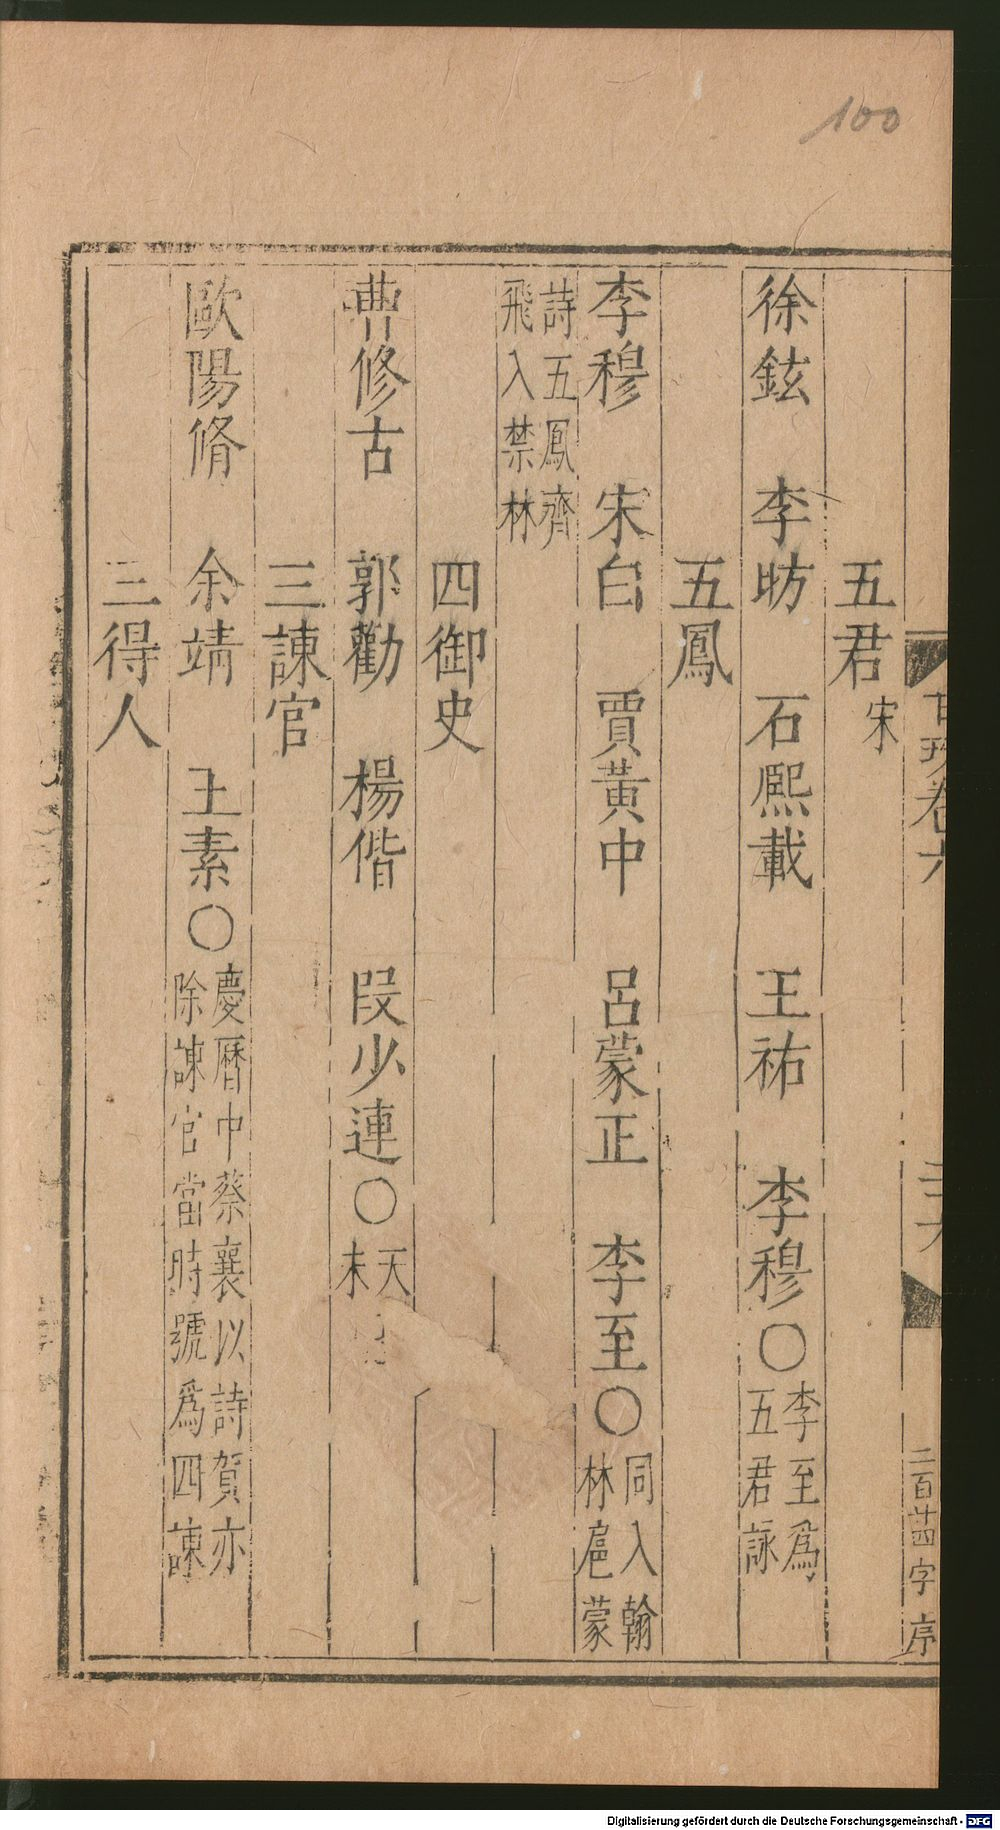 100
五君宋
徐鉉 李昉 石熙載 王祐 李穆○李至爲五君詠
五鳳
李穆 宋白 賈黃中 呂蒙正 李至○同入翰林扈蒙
詩五鳳齊飛入禁林
四御史
曹修古 郭勸 楊偕 段少連○天未
三諫官
歐陽脩 余靖 王素○慶曆中蔡襄以詩賀亦除諫官當時號爲四諫
三得人
卷六
二百廿四字 序
Digitalisierung gefördert durch die Deutsche Forschungsgemeinschaft - DFG